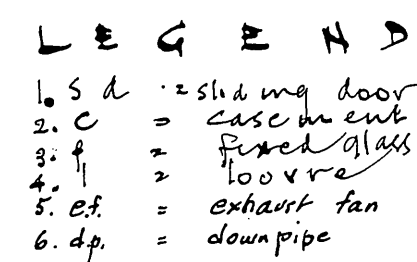 LEGEND
1. s d = sliding door
2. c = casement
3. f = fixed glass
4. l = louvre
5. e.f. = exhaust fan
6. d.p. = downpipe